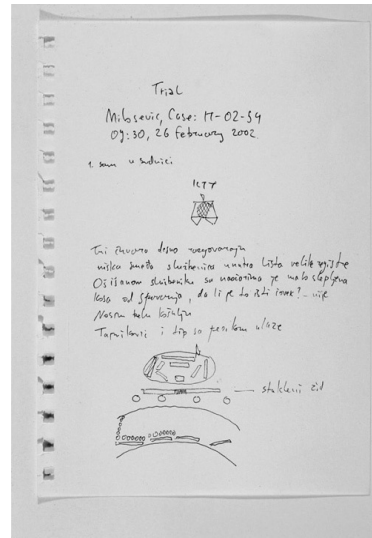 Trial
Milosevic, Case: IT-02-54
09:30, 26 February 2002
1. sam u sudnici
ICTY
Tri čuvara desno razgovaraju
niska smeđa službenica unutra lista velike registre
Ošišanom službeniku sa naočarima je malo slepljena
kosa od spavanja, da li je to isti čovek? - nije
Nosim belu košulju
i tip sa ulaze
stakleni zid